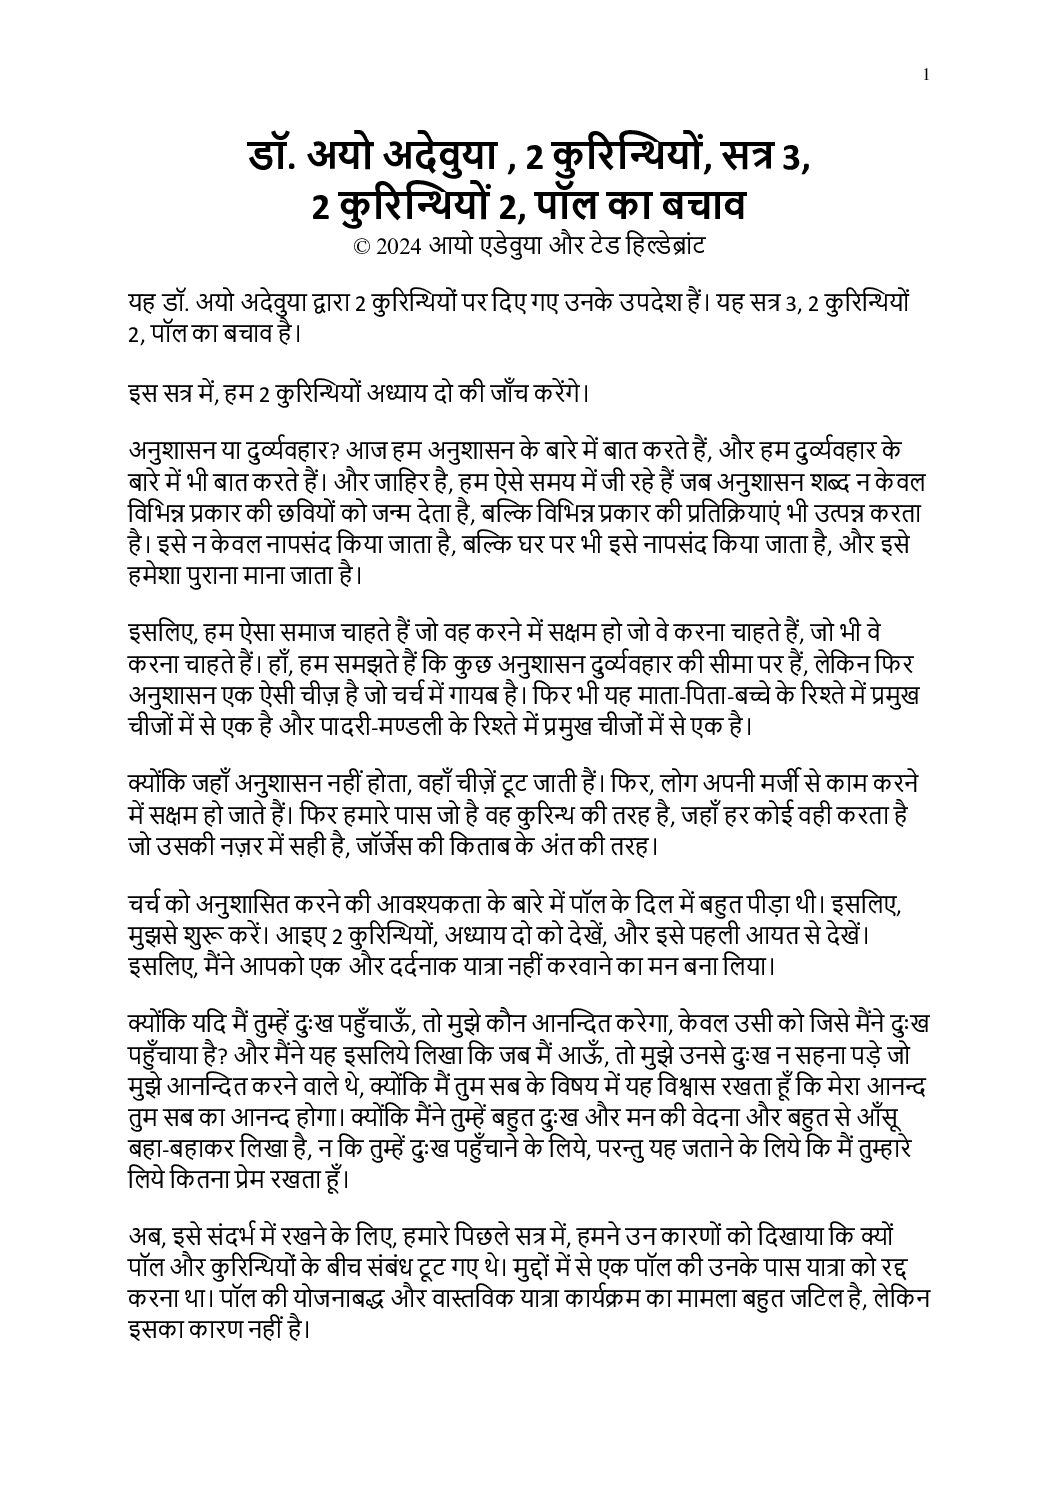 1
डॉ. अयो अदेवुया , 2 कुरिन्थियों, सत्र 3,
2 कुरिन्थियों 2, पॉल का बचाव
© 2024 आयो एडेवुया और टेड हिल्डेब्रांट
यह डॉ. अयो अदेवुया द्वारा 2 कुरिन्थियों पर दिए गए उनके उपदेश हैं। यह सत्र 3, 2 कुरिन्थियों
2, पॉल का बचाव है।
इस सत्र में, हम 2 कुरिन्थियों अध्याय दो की जाँच करेंगे।
अनुशासन या दुर्व्यवहार? आज हम अनुशासन के बारे में बात करते हैं, और हम दुर्व्यवहार के
बारे में भी बात करते हैं। और जाहिर है, हम ऐसे समय में जी रहे हैं जब अनुशासन शब्द न केवल
विभिन्न प्रकार की छवियों को जन्म देता है, बल्कि विभिन्न प्रकार की प्रतिक्रियाएं भी उत्पन्न करता
है। इसे न केवल नापसंद किया जाता है, बल्कि घर पर भी इसे नापसंद किया जाता है, और इसे
हमेशा पुराना माना जाता है।
इसलिए, हम ऐसा समाज चाहते हैं जो वह करने में सक्षम हो जो वे करना चाहते हैं, जो भी वे
करना चाहते हैं। हाँ, हम समझते हैं कि कुछ अनुशासन दुर्व्यवहार की सीमा पर हैं, लेकिन फिर
अनुशासन एक ऐसी चीज़ है जो चर्च में गायब है। फिर भी यह माता-पिता-बच्चे के रिश्ते में प्रमुख
चीजों में से एक है और पादरी-मण्डली के रिश्ते में प्रमुख चीजों में से एक है।
क्योंकि जहाँ अनुशासन नहीं होता, वहाँ चीज़ें टूट जाती हैं। फिर, लोग अपनी मर्जी से काम करने
में सक्षम हो जाते हैं। फिर हमारे पास जो है वह कुरिन्थ की तरह है, जहाँ हर कोई वही करता है
जो उसकी नज़र में सही है, जॉर्जेस की किताब के अंत की तरह।
चर्च को अनुशासित करने की आवश्यकता के बारे में पॉल के दिल में बहुत पीड़ा थी। इसलिए,
मुझसे शुरू करें। आइए 2 कुरिन्थियों, अध्याय दो को देखें, और इसे पहली आयत से देखें।
इसलिए, मैंने आपको एक और दर्दनाक यात्रा नहीं करवाने का मन बना लिया।
क्योंकि यदि मैं तुम्हें दुःख पहुँचाऊँ, तो मुझे कौन आनन्दित करेगा, केवल उसी को जिसे मैंने दुःख
पहुँचाया है? और मैंने यह इसलिये लिखा कि जब मैं आऊँ, तो मुझे उनसे दुःख न सहना पड़े जो
मुझे आनन्दित करने वाले थे, क्योंकि मैं तुम सब के विषय में यह विश्वास रखता हूँ कि मेरा आनन्द
तुम सब का आनन्द होगा। क्योंकि मैंने तुम्हें बहुत दुःख और मन की वेदना और बहुत से आँसू
बहा-बहाकर लिखा है, न कि तुम्हें दुःख पहुँचाने के लिये, परन्तु यह जताने के लिये कि मैं तुम्हारे
लिये कितना प्रेम रखता हूँ।
अब, इसे संदर्भ में रखने के लिए, हमारे पिछले सत्र में, हमने उन कारणों को दिखाया कि क्यों
पॉल और कुरिन्थियों के बीच संबंध टूट गए थे। मुद्दों में से एक पॉल की उनके पास यात्रा को रद्द
करना था। पॉल की योजनाबद्ध और वास्तविक यात्रा कार्यक्रम का मामला बहुत जटिल है, लेकिन
इसका कारण नहीं है।